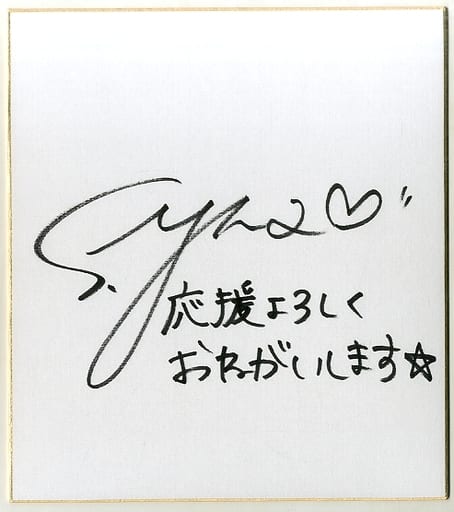 応援よろしく
おねがいします☆